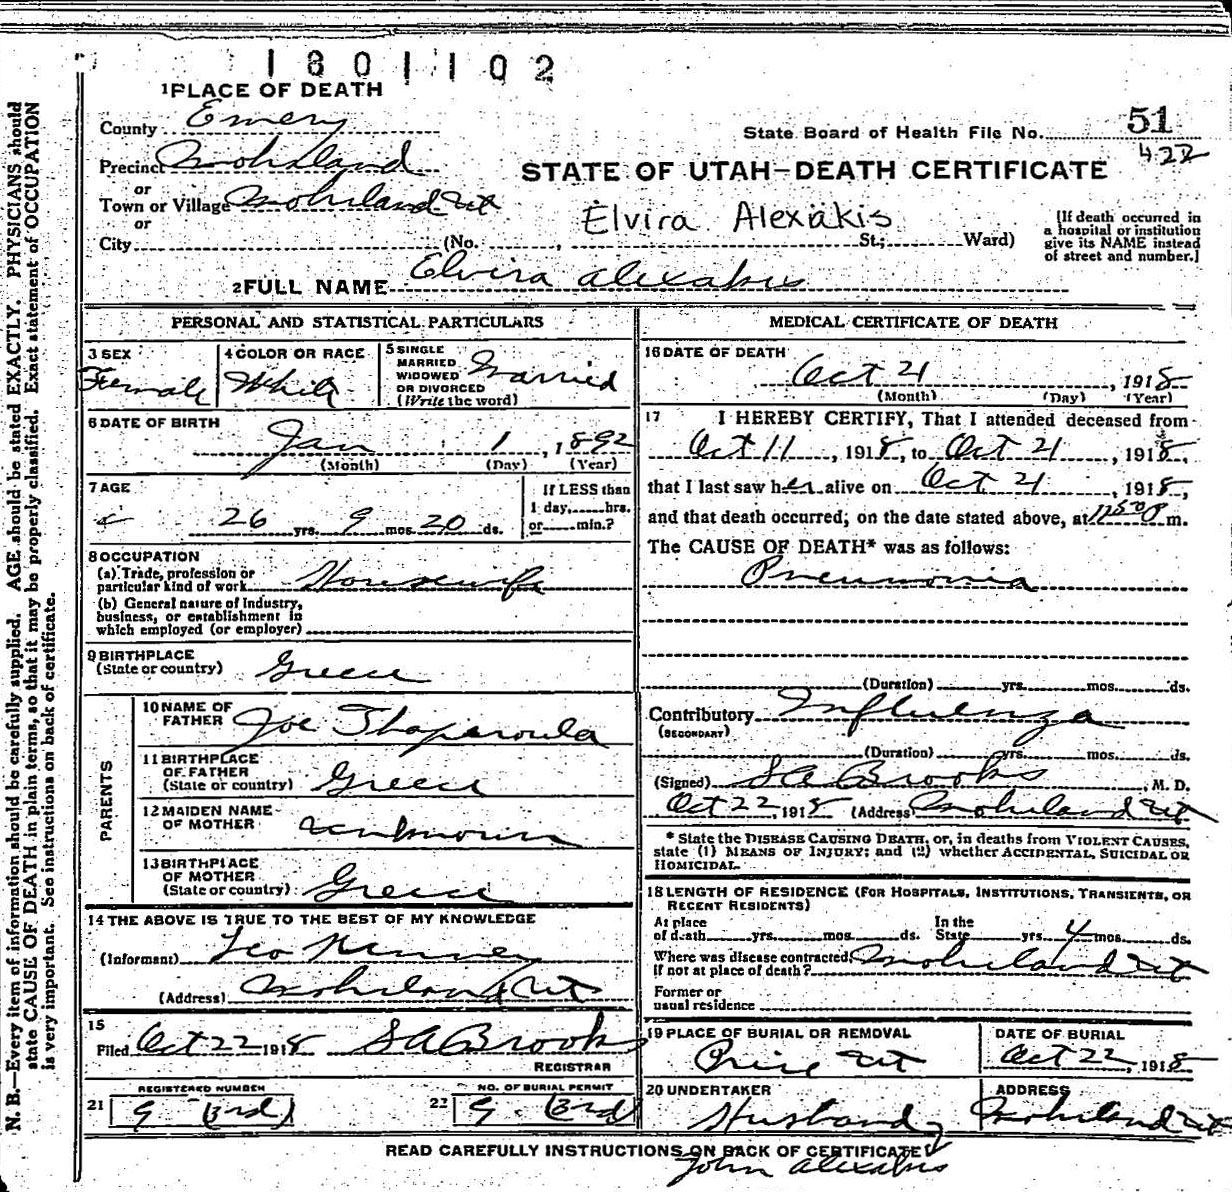 1801102
1 PLACE OF DEATH
County Emery
State Board of Health File No. 51
422
Precinct Mohrland
STATE OF UTAH—DEATH CERTIFICATE
or
Town or Village Mohrland Ut
or
Elvira Alexiakis
City (No. , St.; Ward)
[If death occurred in
a hospital or institution
give its NAME instead
of street and number.]
2 FULL NAME Elvira Alexakis
PERSONAL AND STATISTICAL PARTICULARS
3 SEX
Female
4 COLOR OR RACE
White
5 SINGLE
MARRIED
WIDOWED
OR DIVORCED
(Write the word)
Married
6 DATE OF BIRTH
Jan 1, 1892
(Month) (Day) (Year)
7 AGE
26 yrs. 9 mos. 20 ds.
If LESS than
1 day, hrs.
or min.?
8 OCCUPATION
(a) Trade, profession or
particular kind of work Housewife
(b) General nature of Industry,
business, or establishment in
which employed (or employer)
9 BIRTHPLACE
(State or country) Greece
PARENTS
10 NAME OF
FATHER Joe
11 BIRTHPLACE
OF FATHER
(State or country) Greece
12 MAIDEN NAME
OF MOTHER unknown
13 BIRTHPLACE
OF MOTHER
(State or country) Greece
14 THE ABOVE IS TRUE TO THE BEST OF MY KNOWLEDGE
(Informant) Leo
(Address) Mohrland Ut
15
Filed Oct 22 1918 S A Brooks
REGISTRAR
REGISTERED NUMBER
21 9 (3rd)
NO. OF BURIAL PERMIT
22 9. (3rd)
MEDICAL CERTIFICATE OF DEATH
16 DATE OF DEATH
Oct 21, 1918
(Month) (Day) (Year)
17 I HEREBY CERTIFY, That I attended deceased from
Oct 11, 1918, to Oct 21, 1918,
that I last saw her alive on Oct 21, 1918,
and that death occurred, on the date stated above, at m.
The CAUSE OF DEATH* was as follows:
Pneumonia
(Duration) yrs. mos. ds.
Contributory Influenza
(SECONDARY)
(Duration) yrs. mos. ds.
(Signed) S A Brooks, M. D.
Oct 22, 1918 (Address) Mohrland Ut
* State the DISEASE CAUSING DEATH, or, in deaths from VIOLENT CAUSES,
state (1) MEANS OF INJURY; and (2) whether ACCIDENTAL, SUICIDAL OR
HOMICIDAL.
18 LENGTH OF RESIDENCE (FOR HOSPITALS, INSTITUTIONS, TRANSIENTS, OR
RECENT RESIDENTS)
At place
of death yrs. mos. ds.
In the
State yrs. 4 mos. ds.
Where was disease contracted,
if not at place of death? Mohrland Ut
Former or
usual residence
19 PLACE OF BURIAL OR REMOVAL
Price Ut
DATE OF BURIAL
Oct 22, 1918
20 UNDERTAKER
Husband
ADDRESS
Mohrland Ut
READ CAREFULLY INSTRUCTIONS ON BACK OF CERTIFICATE
John Alexakis
N. B.—Every item of information should be carefully supplied. AGE should be stated EXACTLY. PHYSICIANS should
state CAUSE OF DEATH in plain terms, so that it may be properly classified. Exact statement of OCCUPATION
is very important. See instructions on back of certificate.